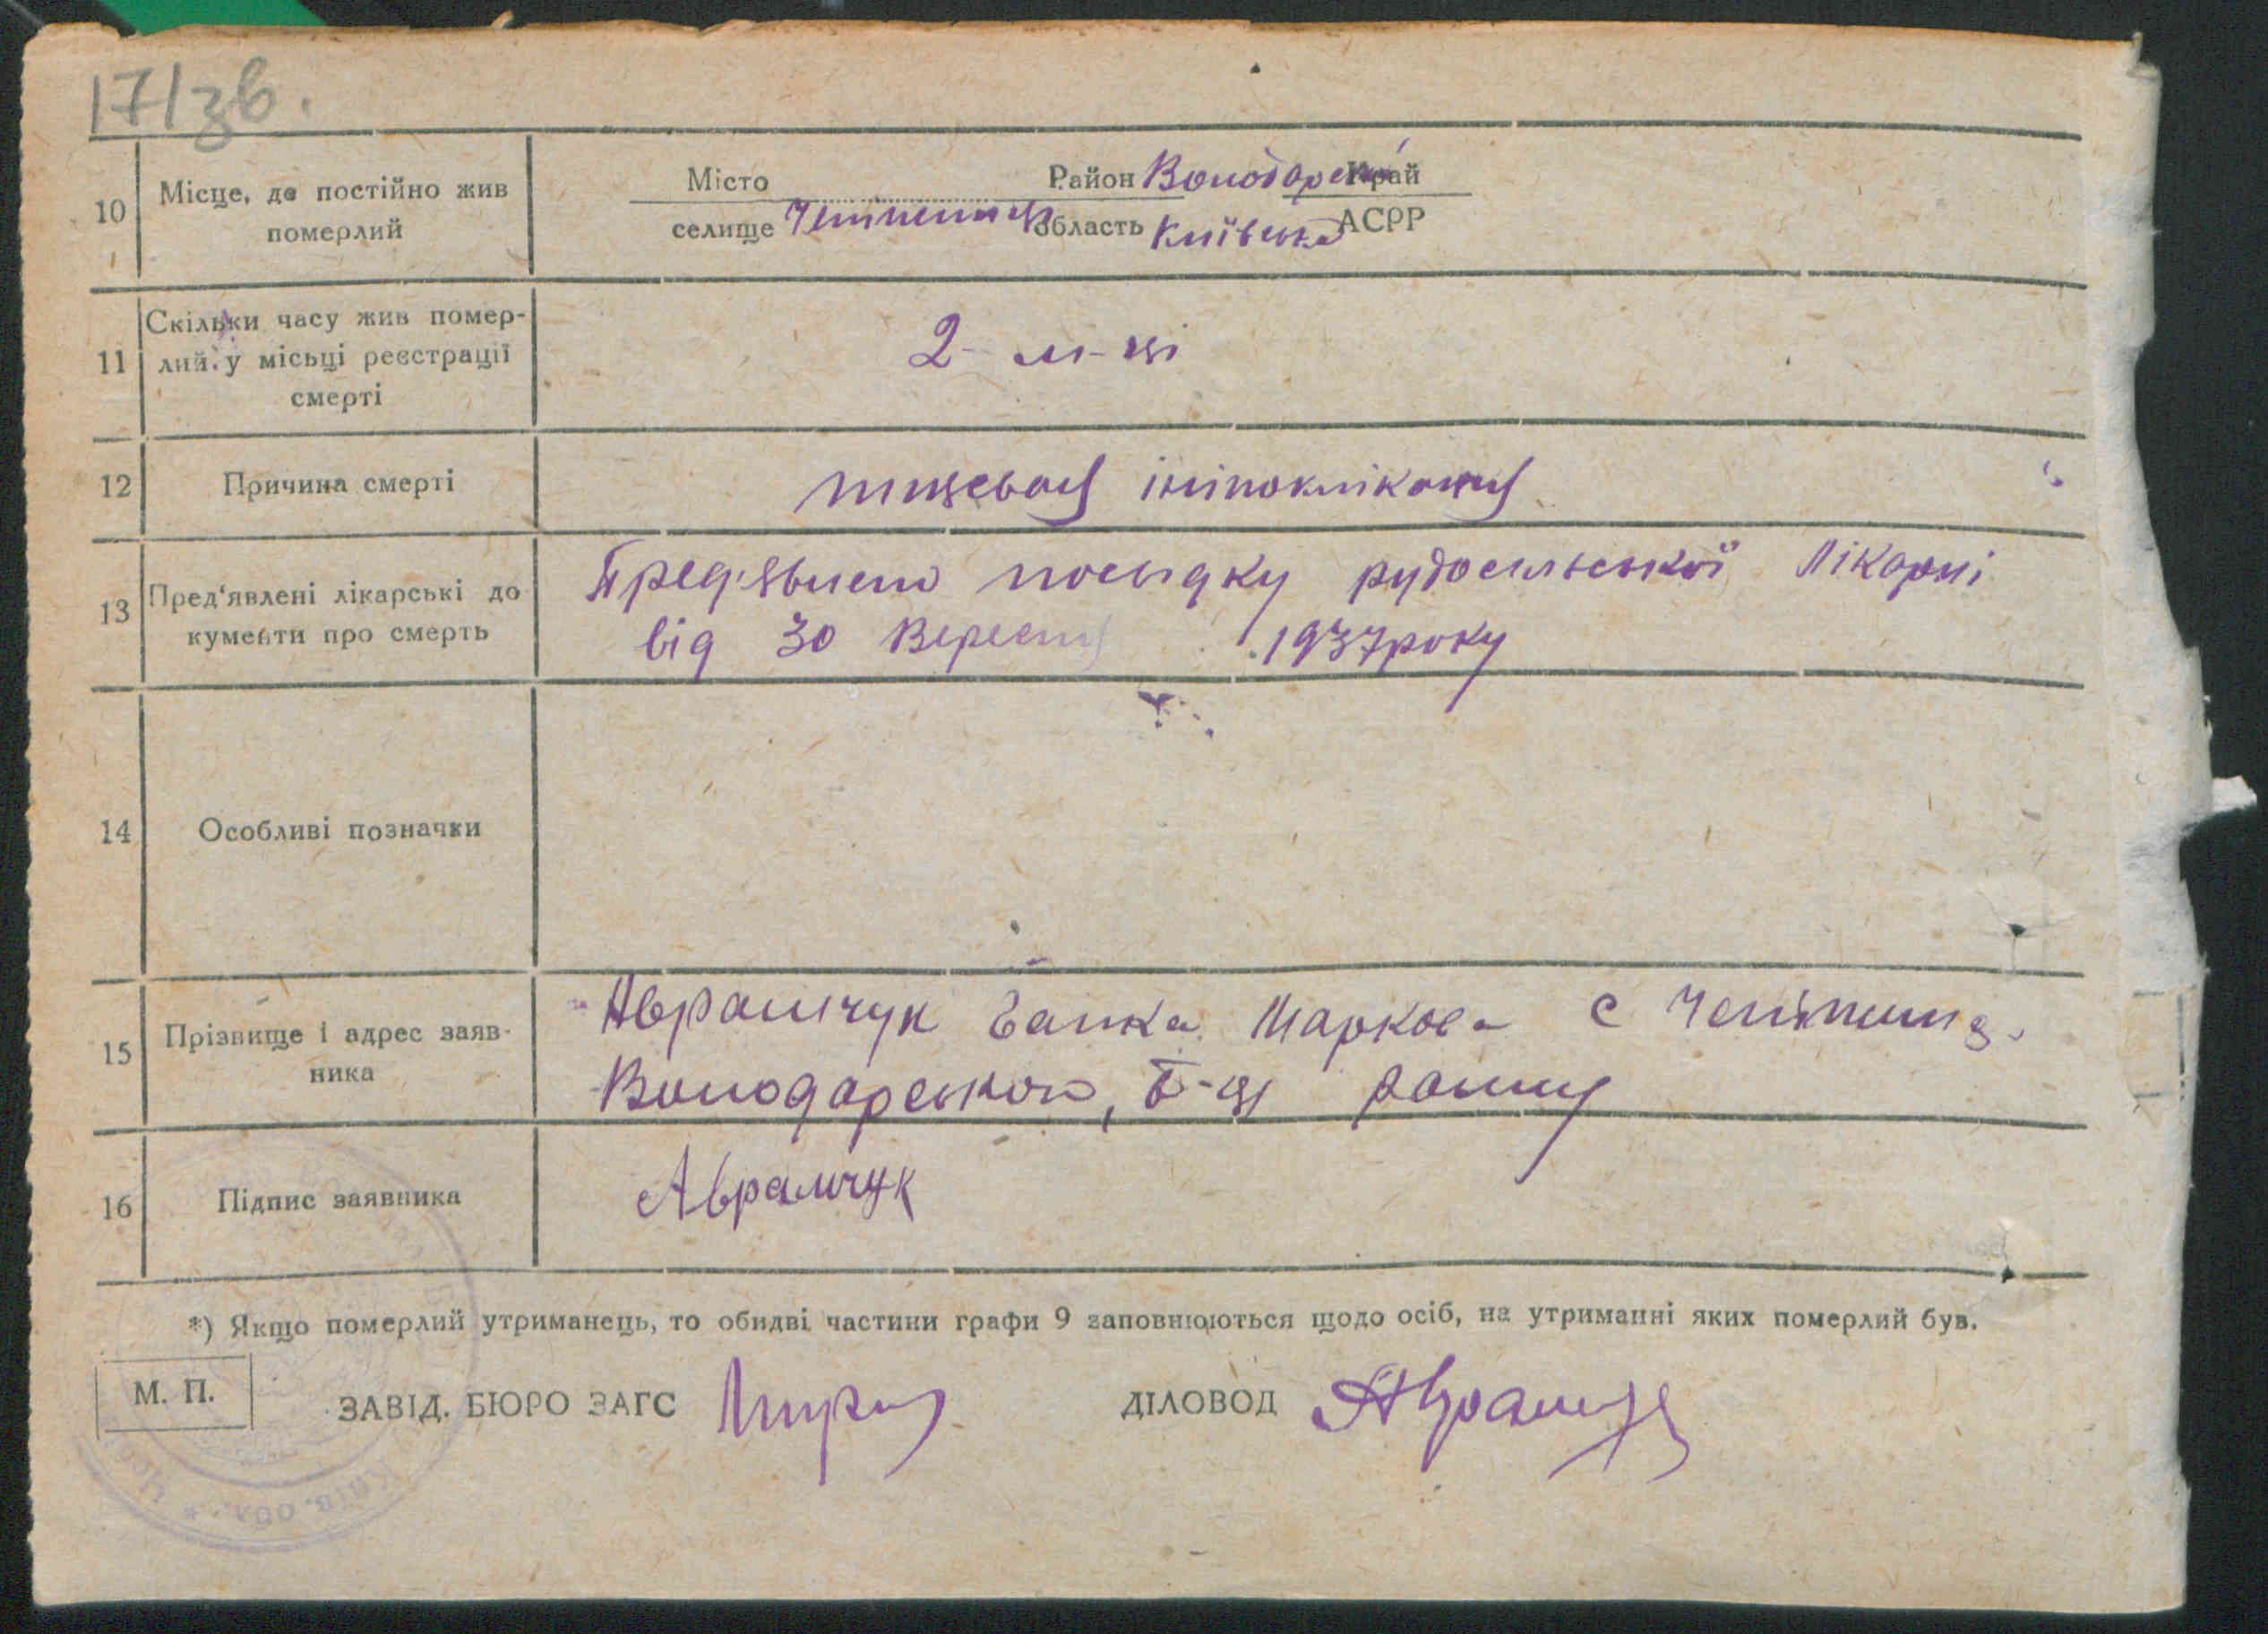 17/зв.
10 Місце, де постійно жив померлий
Місто Район Володарский Край
селище область Київська АСРР
11 Скільки часу жив помер-
лий у місьці реєстрації
смерті
2- м-ці
12 Причина смерті
пищевая
13 Пред'явлені лікарські до
кументи про смерть
Пред'явлено посвідку рудосельської Лікарні
від 30 Вересня 1937року
14 Особливі позначки
15 Прізвище і адрес заяв-
ника
Аврамчук Ганка Маркова с
Володарского, Б-Ц району
16 Підпис заявника
Аврамчук
*) Якщо померлий утриманець, то обидві частини графи 9 заповнюються щодо осіб, на утриманні яких померлий був.
М. П. ЗАВІД. БЮРО ЗАГС ДІЛОВОД
Київ. обл. *